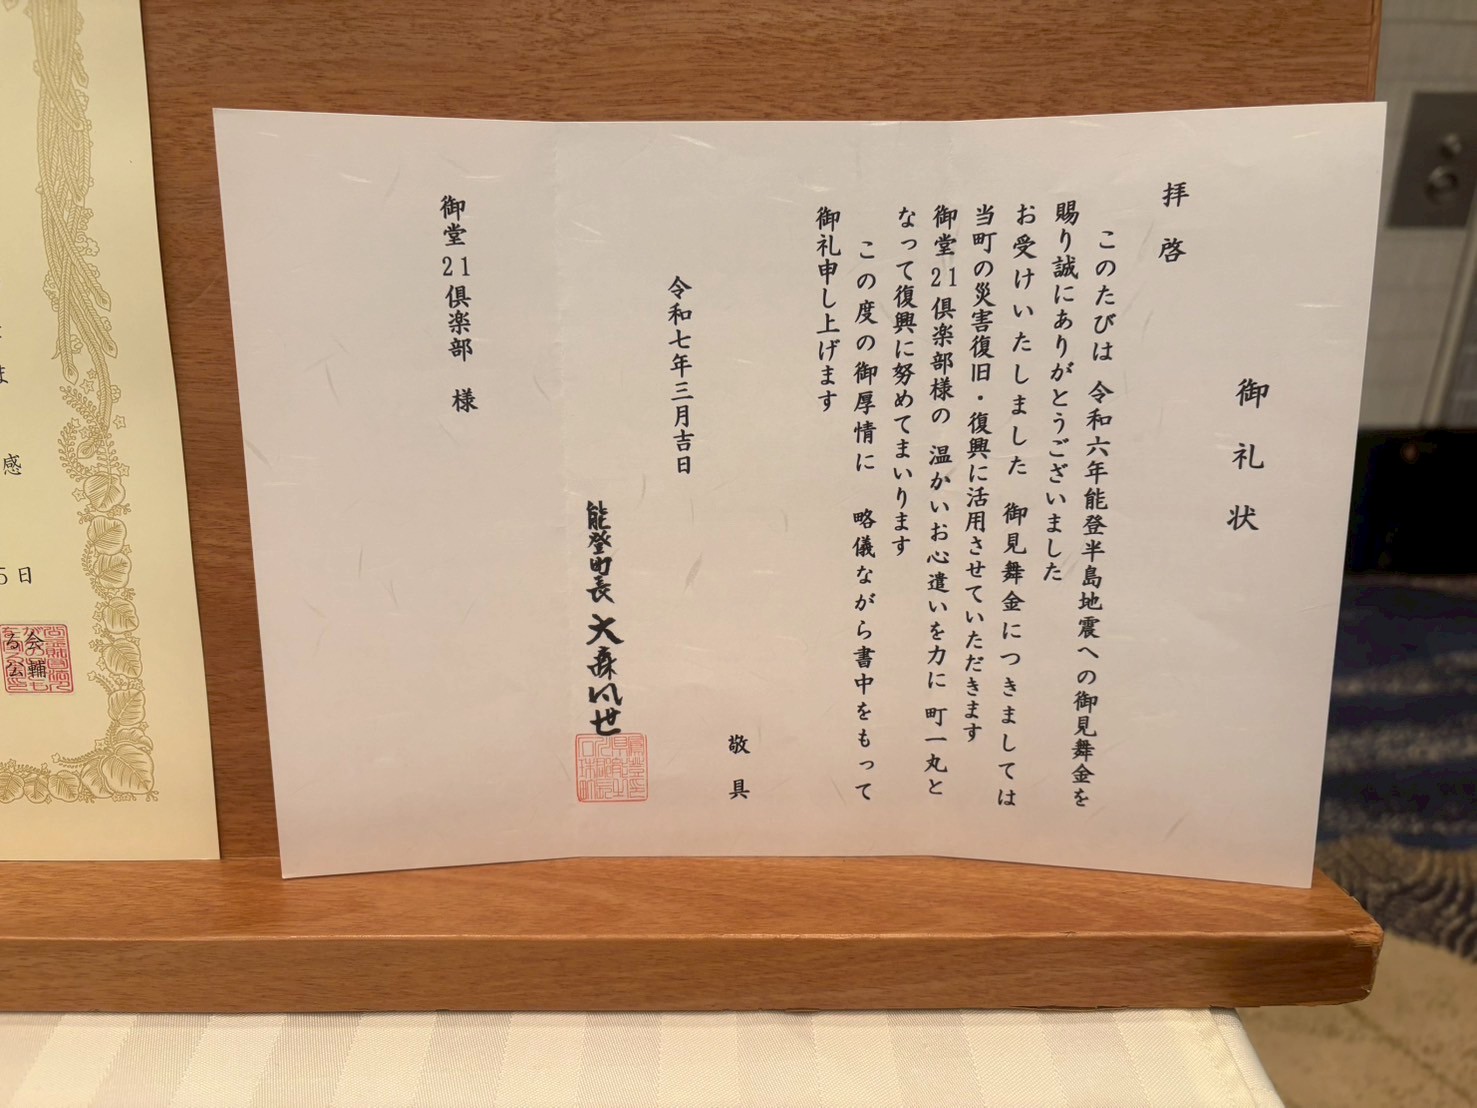 御礼状
拝啓
このたびは 令和六年能登半島地震への御見舞金を
賜り誠にありがとうございました
お受けいたしました 御見舞金につきましては
当町の災害復旧・復興に活用させていただきます
御堂21倶楽部様の 温かいお心遣いを力に 町一丸と
なって復興に努めてまいります
この度の御厚情に 略儀ながら書中をもって
御礼申し上げます
敬具
令和七年三月吉日
能登町長 大森凡世
御堂21倶楽部 様
感
5日